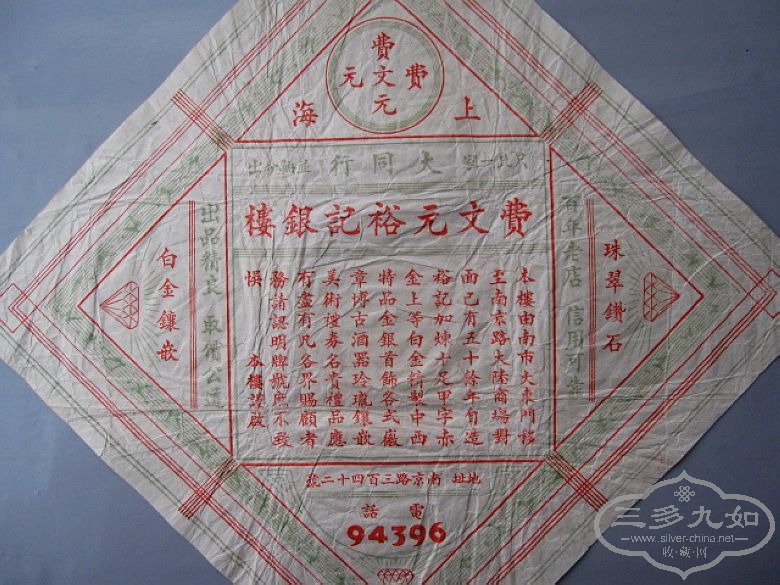 費文元
費文元
上海
只此一家 大同行 並無分出
費文元裕記銀樓
珠翠鑽石
百年老店 信用可靠
本樓由南市大東門移
至南京路大陸商場對
面已有五十餘年自造
裕記加煉十足甲字赤
金上等白金料製中西
特品金銀首飾各式徽
章博古酒器玲瓏鑲嵌
美術禮券名貴禮品應
有盡有凡各界賜顧者
務請認明牌號庶不致
悞 本樓謹啟
出品精良 取價公道
白金鑲嵌
地址 南京路三百四十二號
電話
94396
三多九如
www.silver-china.net
收·藏·网